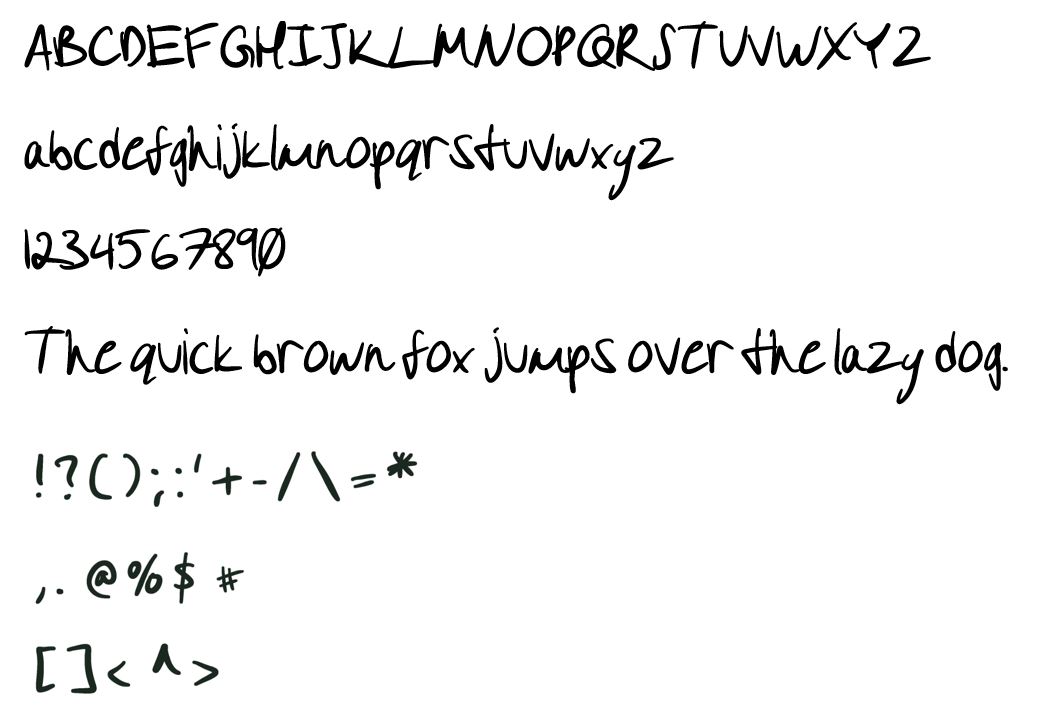 ABCDEFGHIJKLMNOPQRSTUVWXYZ
abcdefghijklmnopqrstuvwxyz
1234567890
The quick brown fox jumps over the lazy dog.
!?();:'+-/\=*
,.@%$#
[]<^>